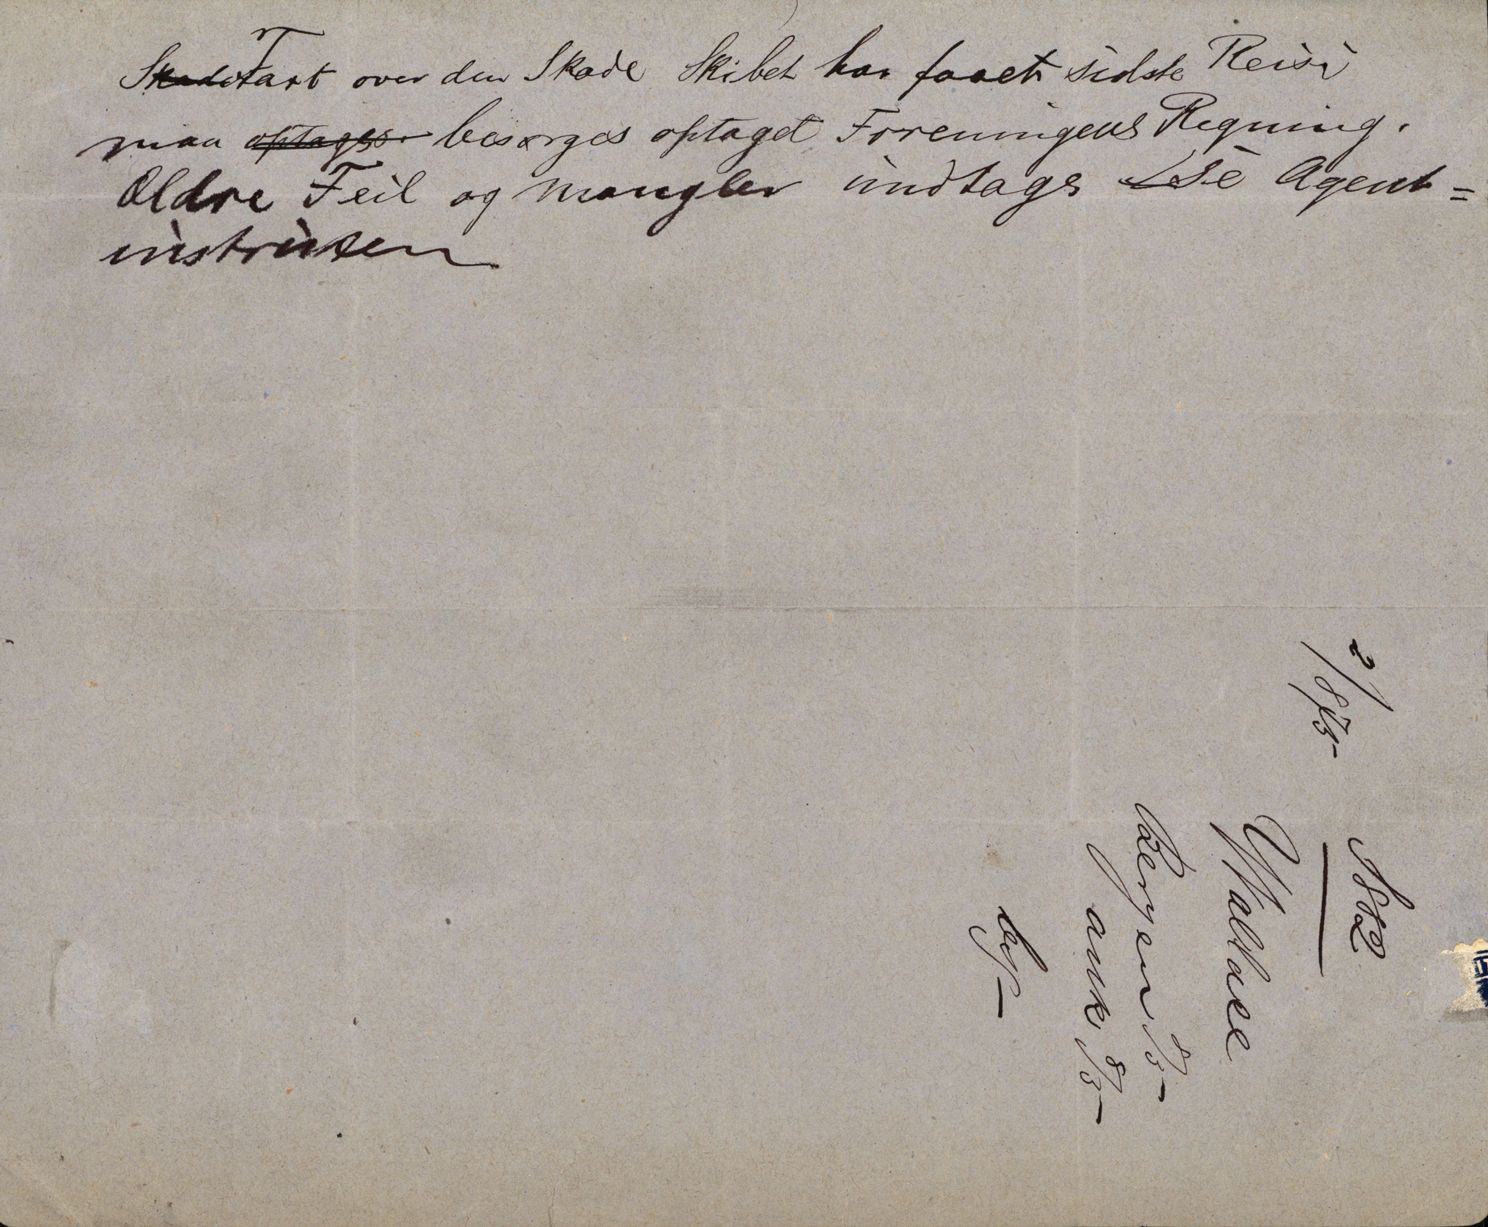 Taxt over den Skade Skibet har faaet sidste Reise
maa besørges optaget Foreningens Regning.
Ældre Feil og Mangler undtages Se Agent=
instruxen
1882
Bergen 8/3-
ank 8/3-